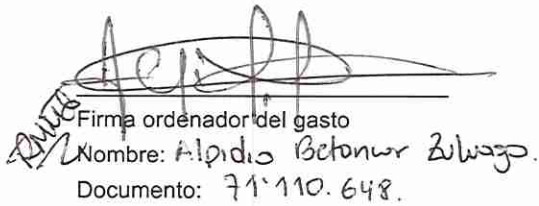 Firma ordenador del gasto
Nombre: Alpidio Betancur Zuluaga.
Documento: 71'110.648.